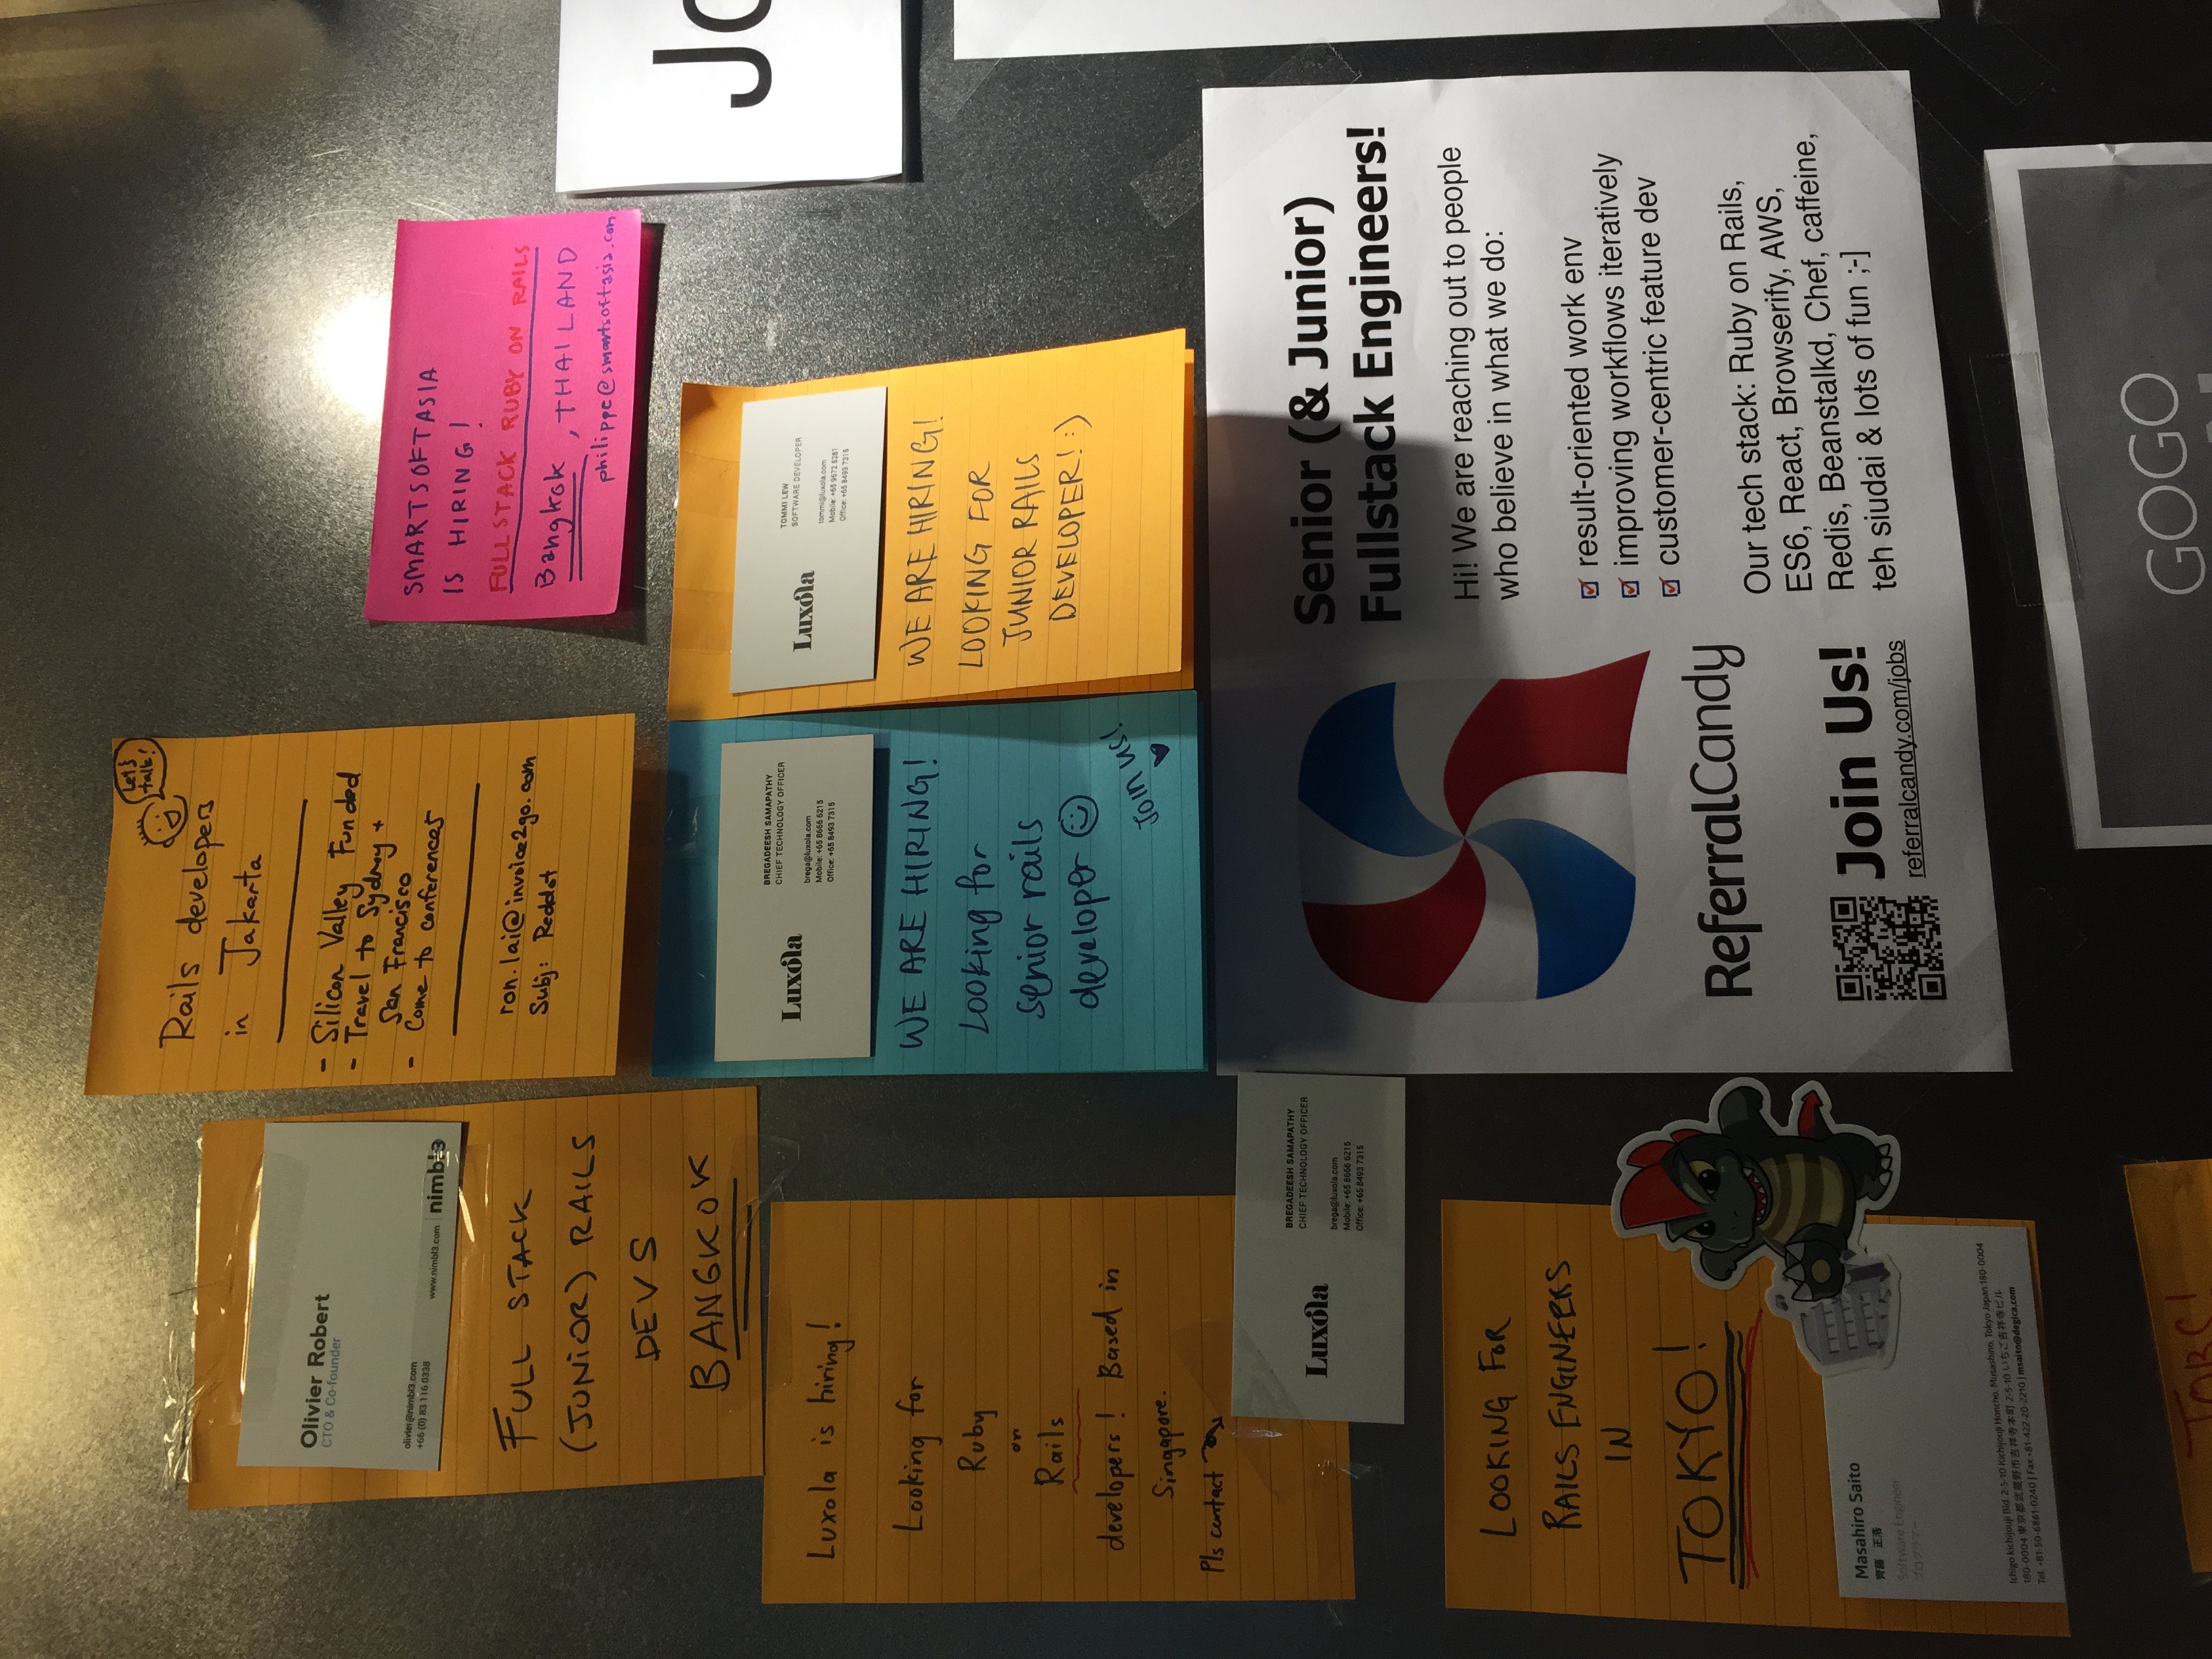 Olivier Robert
CTO & Co-founder
olivier@nimbl3.com
+66 (0) 83 116 0338
www.nimbl3.com
nimbl3
FULL STACK
(JUNIOR) RAILS
DEVS
BANGKOK
Let's
talk!
Rails developers
in Jakarta
- Silicon Valley Funded
- Travel to Sydney +
San Francisco
- Come to conferences
ron.lai@invoice2go.com
Subj: Reddot
SMARTSOFTASIA
IS HIRING!
FULLSTACK RUBY ON RAILS
Bangkok, THAILAND
philippe@smartsoftasia.com
Luxola is hiring!
Looking for
Ruby
on
Rails
developers! Based in
Singapore.
Pls contact
Luxola
BREGADEESH SAMAPATHY
CHIEF TECHNOLOGY OFFICER
brega@luxola.com
Mobile: +65 8666 6215
Office: +65 8493 7315
Luxola
BREGADEESH SAMAPATHY
CHIEF TECHNOLOGY OFFICER
brega@luxola.com
Mobile: +65 8666 6215
Office: +65 8493 7315
WE ARE HIRING!
Looking for
senior rails
developer
Join us!
Luxola
TOMMI LEW
SOFTWARE DEVELOPER
tommi@luxola.com
Mobile: +65 9672 5281
Office: +65 8493 7315
WE ARE HIRING!
LOOKING FOR
JUNIOR RAILS
DEVELOPER! :)
LOOKING FOR
RAILS ENGINEERS
IN
TOKYO!
Masahiro Saito
齊藤 正浩
Software Engineer
プログラマー
Ichigo kichijouji Bld. 2-5-10 Kichijouji Honcho, Musashino, Tokyo Japan 180-0004
180-0004 東京都武蔵野市吉祥寺本町 2-5-10 いちご吉祥寺ビル
Tel. +81-50-6861-0240 | Fax +81-422-20-2210 | msaito@degica.com
ReferralCandy
Join Us!
referralcandy.com/jobs
Senior (& Junior)
Fullstack Engineers!
Hi! We are reaching out to people
who believe in what we do:
result-oriented work env
improving workflows iteratively
customer-centric feature dev
Our tech stack: Ruby on Rails,
ES6, React, Browserify, AWS,
Redis, Beanstalkd, Chef, caffeine,
teh siudai & lots of fun ;-]
JOBS!
GOGO